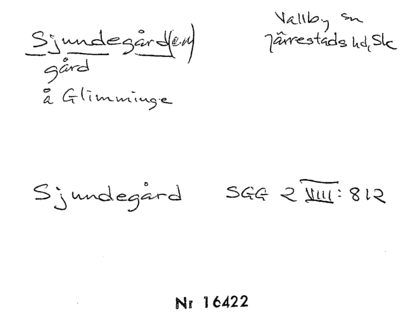 Sjundegård(en)
gård
å Glimminge
Vallby sn
Järrestads hd, Sk
Sjundegård SGG 2 VIII: 812
Nr 16422